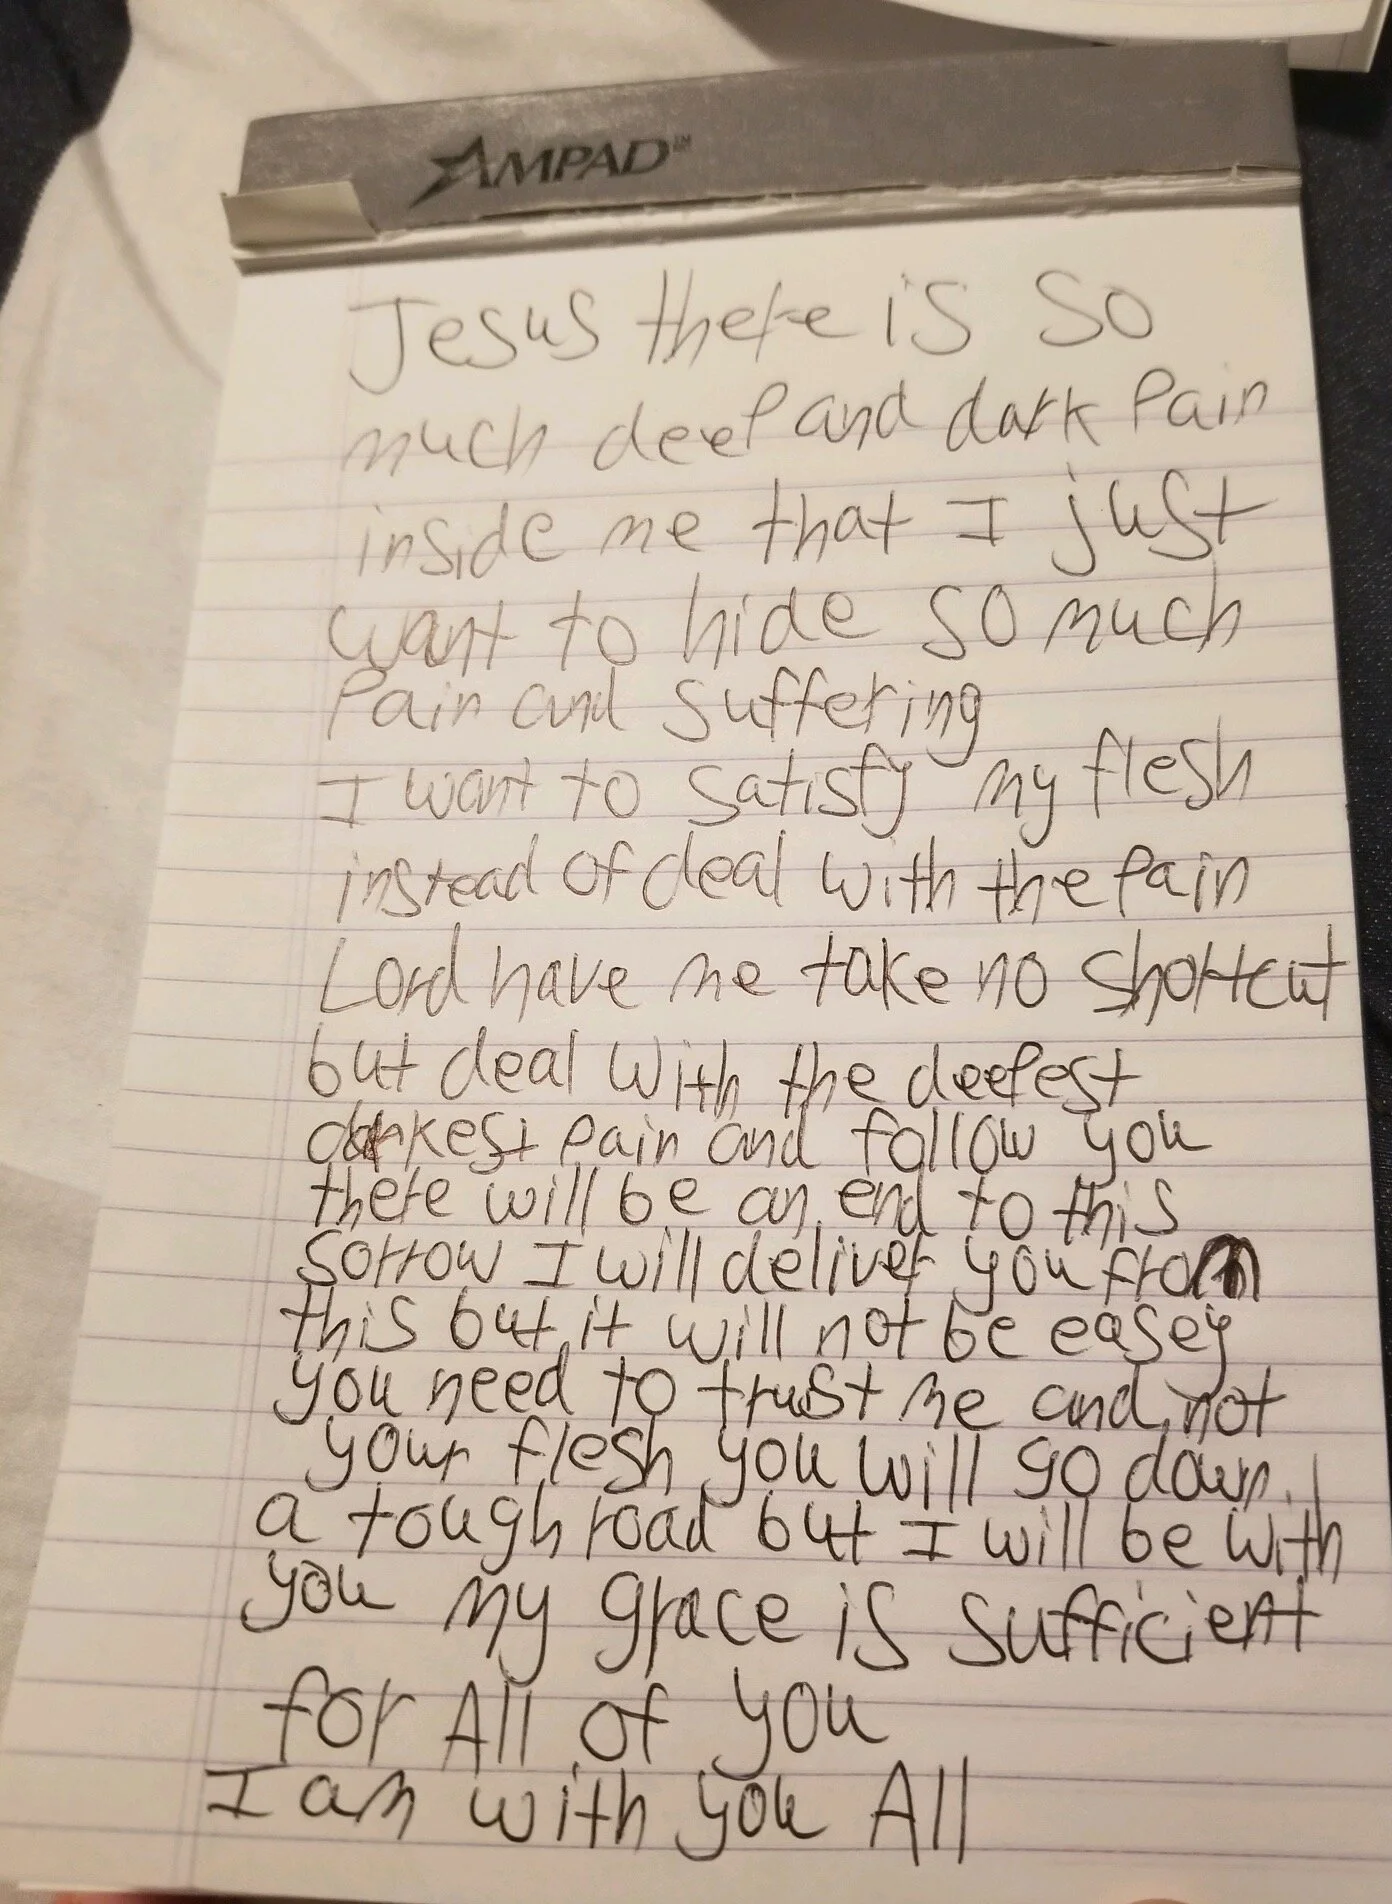 AMPAD™
Jesus there is so
much deep and dark Pain
inside me that I just
want to hide so much
Pain and suffering
I want to satisfy my flesh
instead of deal with the Pain
Lord have me take no shortcut
but deal with the deepest
darkest pain and follow you
there will be an end to this
sorrow I will deliver you from
this but it will not be easey
you need to trust me and not
your flesh you will go down
a tough road but I will be with
you my grace is sufficient
for All of you
I am with you All